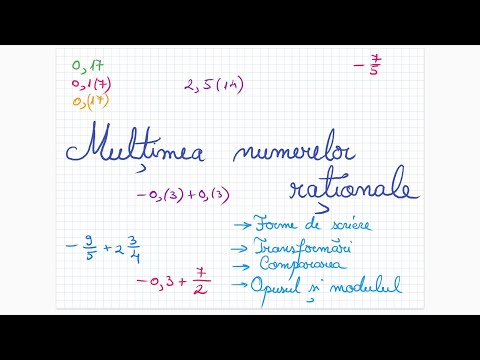 0,17
0,1(7)
0,(17)
2,5(14)
- 7/5
Mulțimea numerelor
raționale
-0,(3)+0,(3)
→ Forme de scriere
→ Transformări
→ Compararea
→ Opusul și modulul
- 9/5 + 2 3/4
-0,3 + 7/2